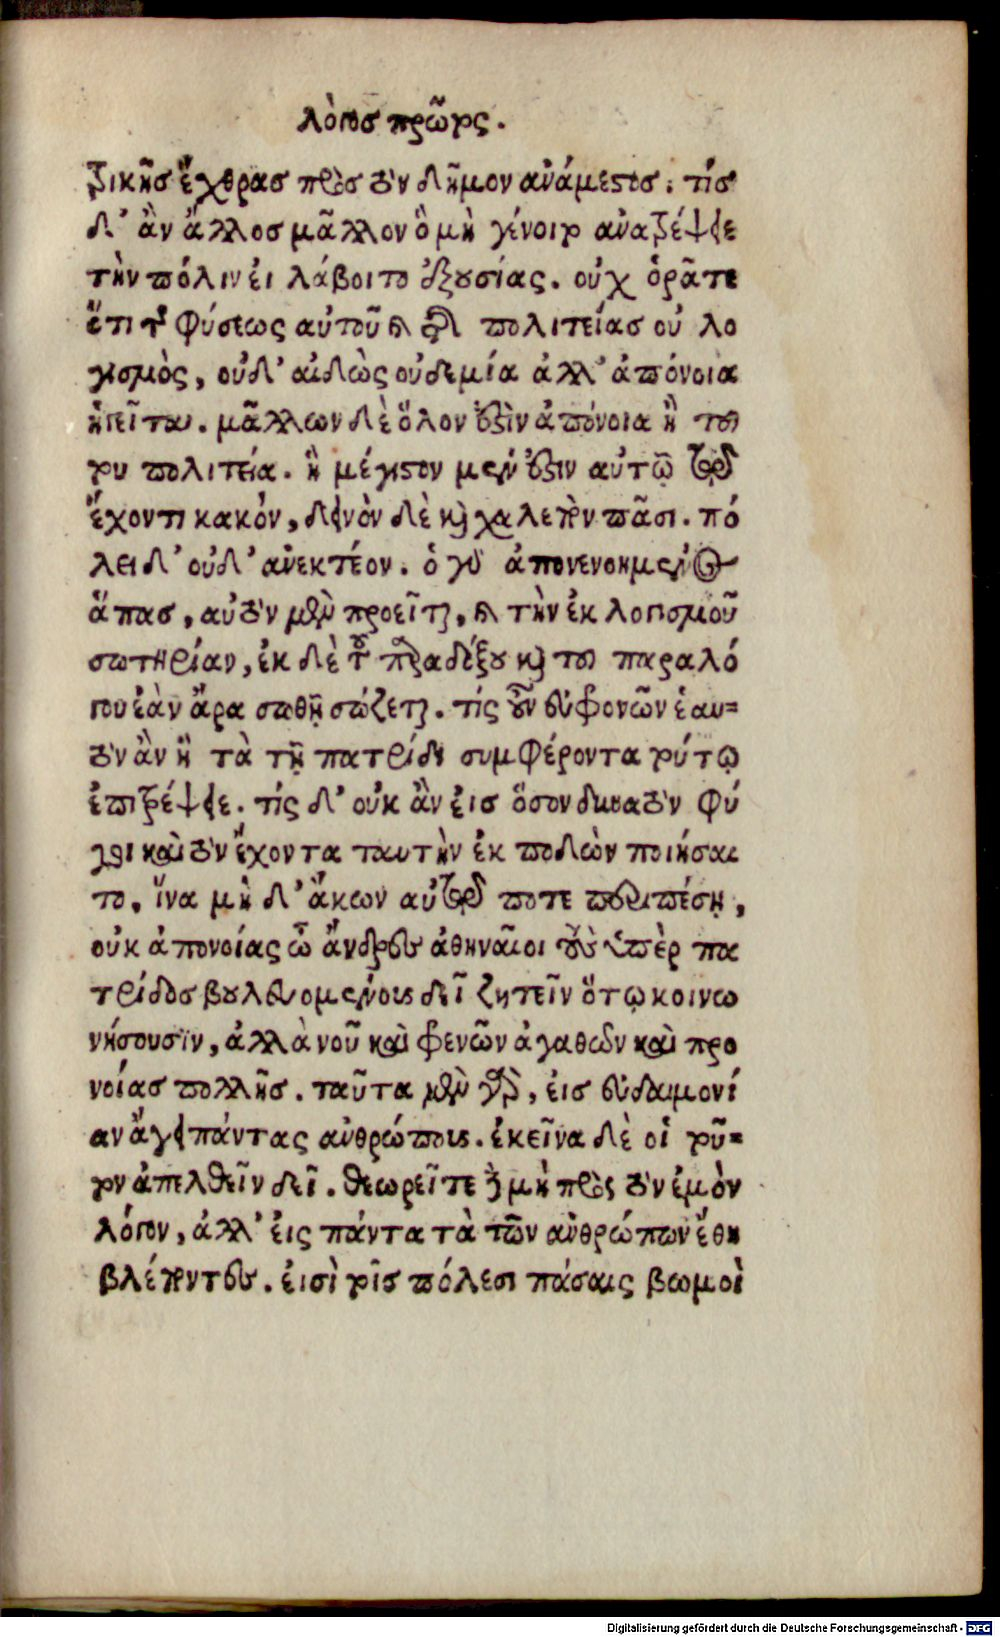 λόγος πρῶτος.
τρικῆς ἔχθρας πρὸς τὸν δῆμον ἀνάμεστος; τίς
δ' ἂν ἄλλος μᾶλλον ὃ μὴ γένοιτο ἀναστρέψειε
τὴν πόλιν εἰ λάβοιτο ἐξουσίας. οὐχ ὁρᾶτε
ὅτι τῆς φύσεως αὐτοῦ καὶ τῆς πολιτείας οὐ λο
γισμὸς, οὐδ' αἰδὼς οὐδεμία ἀλλ' ἀπόνοια
ἡγεῖται. μᾶλλον δὲ ὅλον ἐστὶν ἀπόνοια ἡ τού
του πολιτεία. ἣ μέγιστον μέν ἐστιν αὐτῷ τῷ
ἔχοντι κακόν, δεινὸν δὲ καὶ χαλεπὸν πᾶσι. πό
λει δ' οὐδ' ἀνεκτέον. ὁ γὰρ ἀπονενοημένος
ἅπας, αὑτὸν μὲν προεῖται, καὶ τὴν ἐκ λογισμοῦ
σωτηρίαν, ἐκ δὲ τοῦ παραδόξου καὶ τοῦ παραλό
γου ἐὰν ἄρα σωθῇ σώζεται. τίς οὖν εὖ φρονῶν ἑαυ-
τὸν ἂν ἢ τὰ τῇ πατρίδι συμφέροντα τούτῳ
ἐπιτρέψειε. τίς δ' οὐκ ἂν εἰς ὅσον δυνατὸν φύ
γοι καὶ τὸν ἔχοντα ταύτην ἐκ ποδῶν ποιήσαι
το, ἵνα μὴ δ' ἄκων αὐτῷ ποτε περιπέσῃ,
οὐκ ἀπονοίας ὦ ἄνδρες ἀθηναῖοι τοὺς ὑπὲρ πα
τρίδος βουλευομένους δεῖ ζητεῖν ὅτῳ κοινω
νήσουσιν, ἀλλὰ νοῦ καὶ φρενῶν ἀγαθῶν καὶ προ
νοίας πολλῆς. ταῦτα μὲν γὰρ, εἰς εὐδαιμονί
αν ἄγει πάντας ἀνθρώπους. ἐκεῖνα δὲ οἷ τοῦ-
τον ἀπελθεῖν δεῖ. θεωρεῖτε δὲ μὴ πρὸς τὸν ἐμὸν
λόγον, ἀλλ' εἰς πάντα τὰ τῶν ἀνθρώπων ἔθη
βλέποντες. εἰσὶ ταῖς πόλεσι πάσαις βωμοὶ
Digitalisierung gefördert durch die Deutsche Forschungsgemeinschaft - DFG